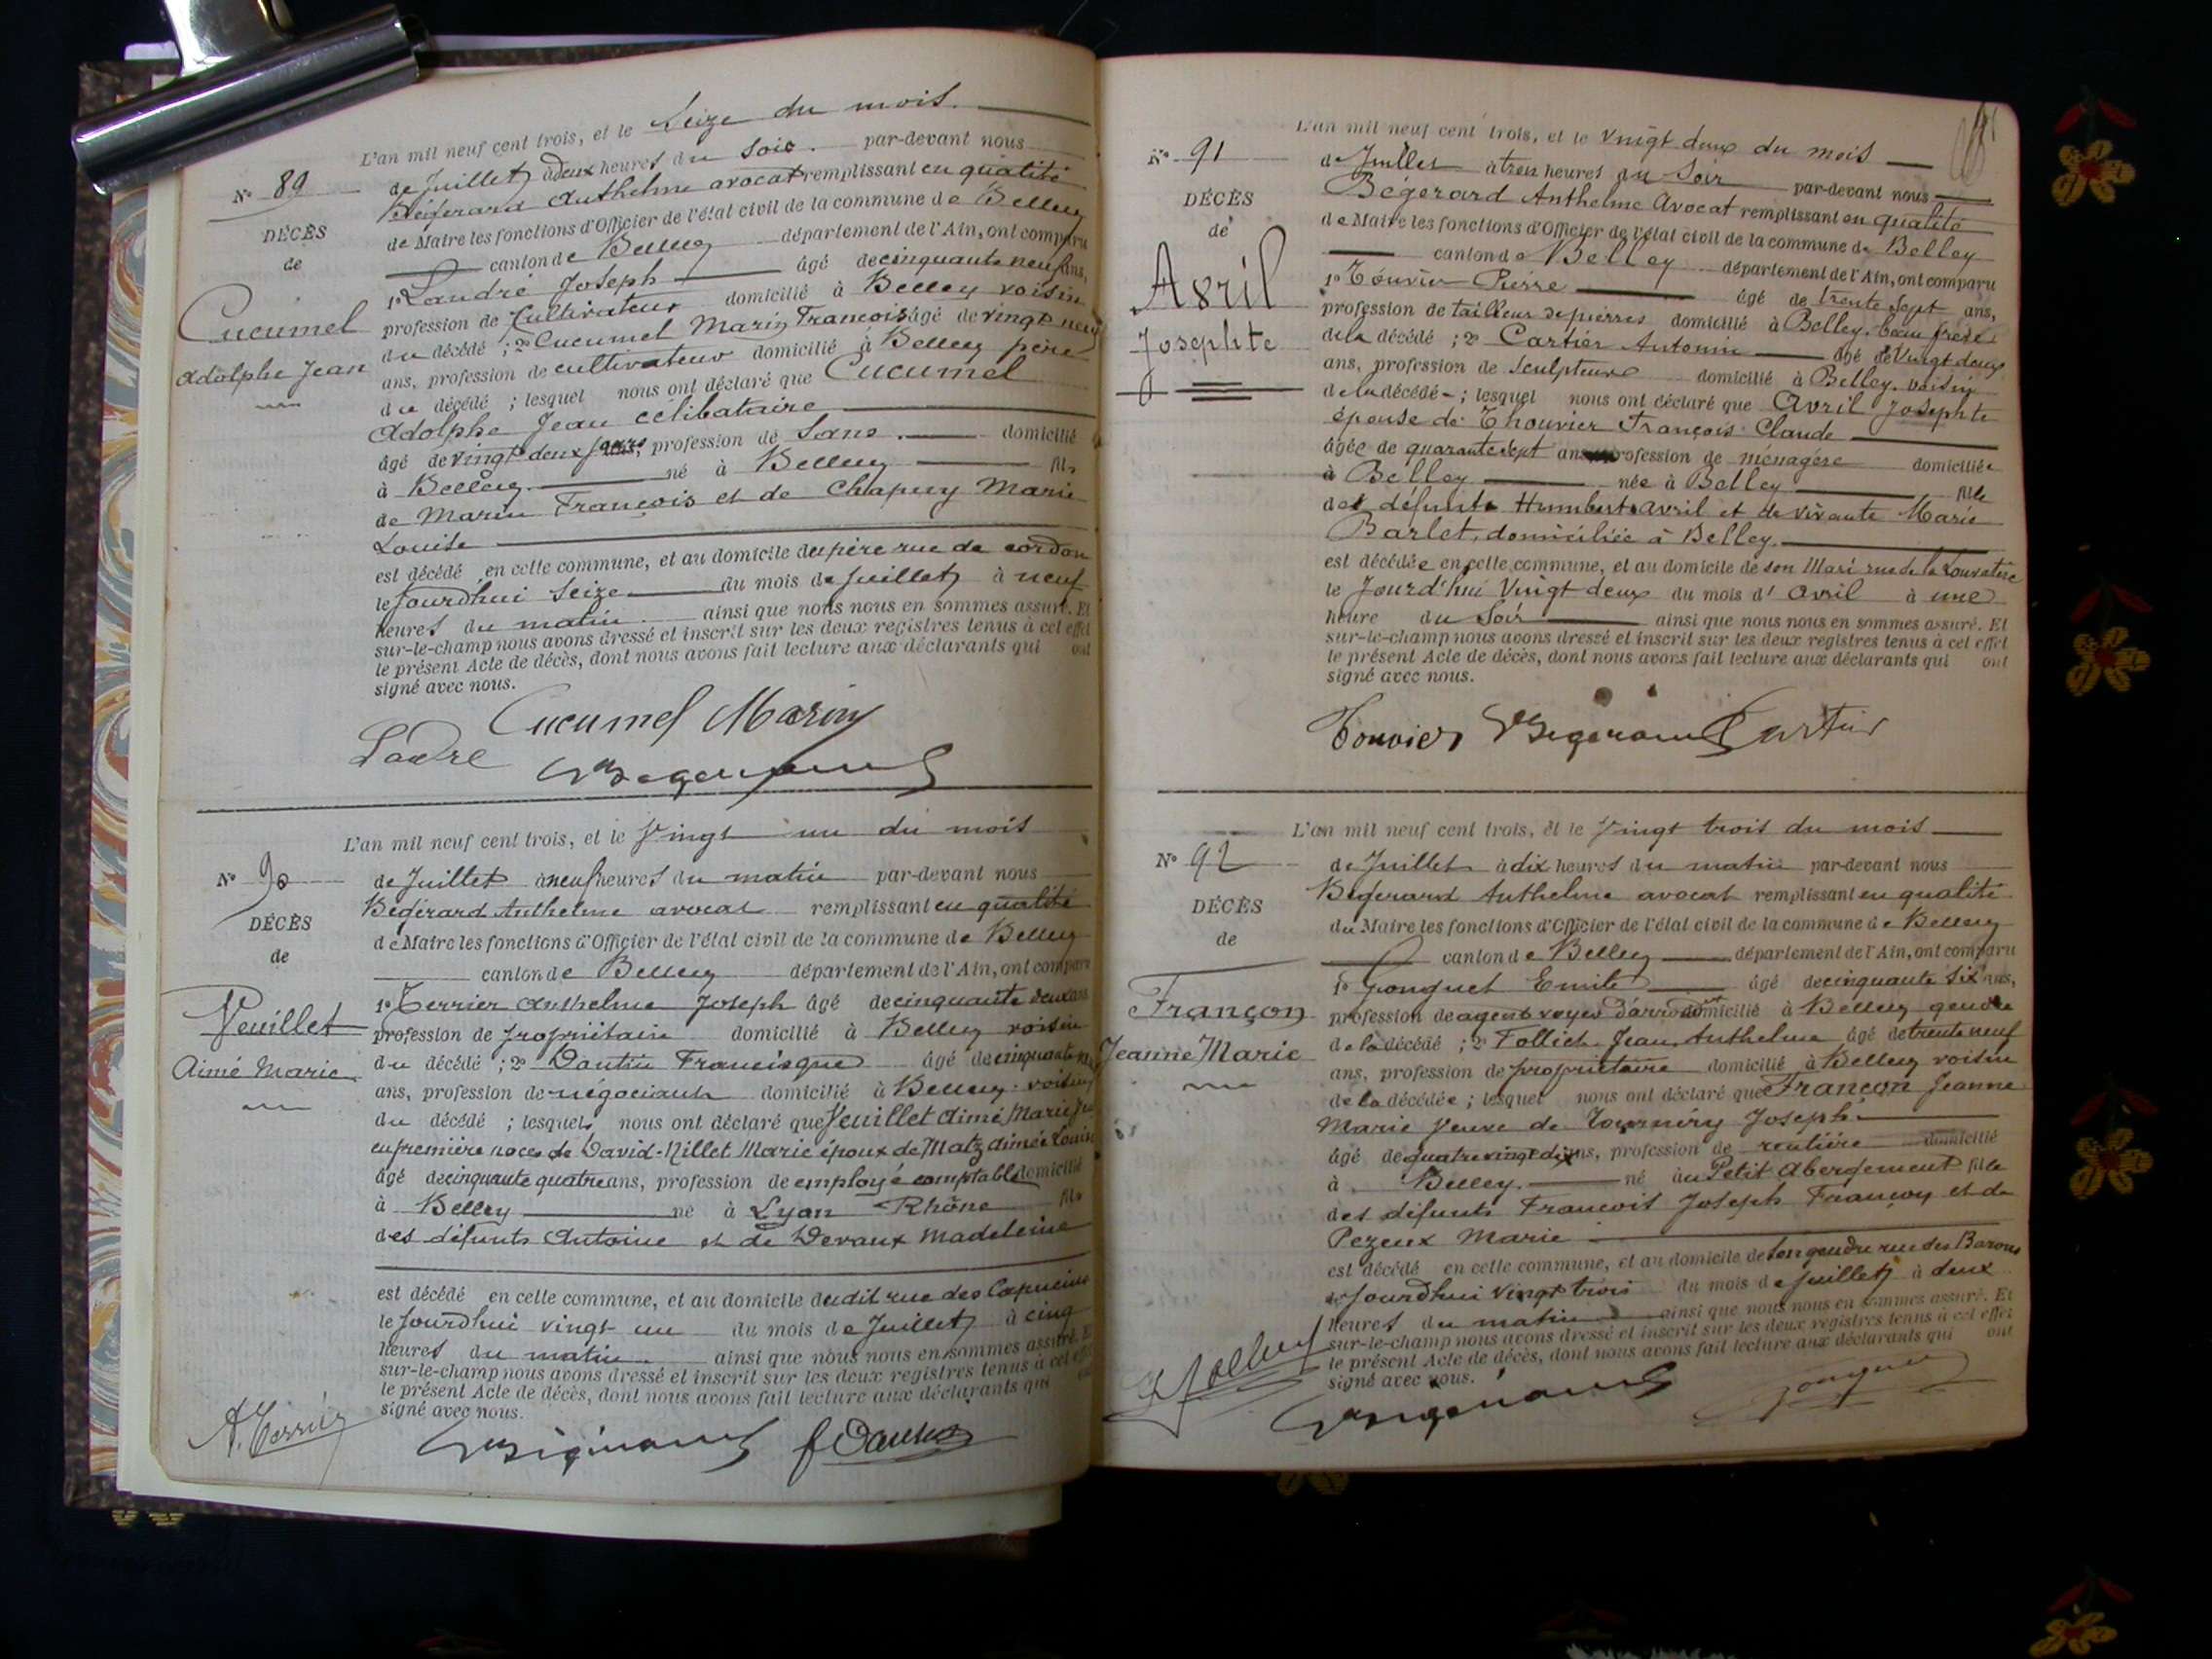 L'an mil neuf cent trois, et le Seize du mois
N° 89
de Juillet à deux heures du Soir. par-devant nous
Bégerard Anthelme avocat remplissant en qualité
DÉCÈS
de Maire les fonctions d'Officier de l'état civil de la commune de Belley
de
canton de Belley département de l'Ain, ont comparu
1° Landré Joseph âgé de cinquante neuf ans,
Cucumel
profession de Cultivateur domicilié à Belley voisin
du décédé ; 2° Cucumel Marin Francois âgé de vingt neuf
Adolphe Jean
ans, profession de cultivateur domicilié à Belley père
du décédé ; lesquel nous ont déclaré que Cucumel
Adolphe Jean célibataire
âgé de vingt deux jours, profession de Sans. domicilié
à Belley né à Belley fils
de Marin François et de Chapuy Marie
Louise
est décédé en cette commune, et au domicile du père rue de cordon
le Jourdhui Seize du mois de Juillet à neuf
heures du matin ainsi que nous nous en sommes assuré. Et
sur-le-champ nous avons dressé et inscrit sur les deux registres tenus à cet effet
le présent Acte de décès, dont nous avons fait lecture aux déclarants qui ont
signé avec nous.
Cucumel Marin
Ladre
Begerard
L'an mil neuf cent trois, et le Vingt un du mois
N° 90
de Juillet à neuf heures du matin par-devant nous
Bégérard Anthelme avocat remplissant en qualité
DÉCÈS
de Maire les fonctions d'Officier de l'état civil de la commune de Belley
de
canton de Belley département de l'Ain, ont comparu
1° Terrier Anthelme Joseph âgé de cinquante deux ans
Veuillet
profession de propriétaire domicilié à Belley voisin
du décédé ; 2° Dantin Francisque âgé de cinquante
Aimé Marie
ans, profession de négociant domicilié à Belley. voisin
du décédé ; lesquels nous ont déclaré que Veuillet Aimé Marie
en première noces de David-Nillet Marie époux de Matz Aimée Louise
âgé de cinquante quatre ans, profession de employé comptable domicilié
à Belley né à Lyon Rhône fils
des défunts Antoine et de Devaux Madeleine
est décédé en cette commune, et au domicile dudit rue des Capucins
le Jourdhui vingt un du mois de Juillet à cinq
heures du matin. ainsi que nous nous en sommes assuré. Et
sur-le-champ nous avons dressé et inscrit sur les deux registres tenus à cet effet
le présent Acte de décès, dont nous avons fait lecture aux déclarants qui ont
signé avec nous.
A. Terrier
Begérard
f Dantin
L'an mil neuf cent trois, et le Vingt deux du mois
N° 91
de Juillet à trois heures du Soir par-devant nous
Bégerard Anthelme Avocat remplissant en qualité
DÉCÈS
de Maire les fonctions d'Officier de l'état civil de la commune de Belley
de
canton de Belley département de l'Ain, ont comparu
1° Touvier Pierre âgé de trente sept ans,
Avril
profession de tailleur de pierres domicilié à Belley. beau frère
Josephte
de la décédé ; 2° Cartier Antonin âgé de Vingt deux
ans, profession de Sculpteur domicilié à Belley. voisin
de la décédé ; lesquel nous ont déclaré que Avril Josephte
épouse de Thouvier François Claude
âgée de quarante sept ans profession de menagère domiciliée
à Belley née à Belley fille
des défunts Humbert Avril et de vivante Marie
Barlet, domiciliée à Belley.
est décédée en cette commune, et au domicile de son Mari rue de la Louvatière
le Jourd'hui Vingt deux du mois d' Avril à une
heure du Soir ainsi que nous nous en sommes assuré. Et
sur-le-champ nous avons dressé et inscrit sur les deux registres tenus à cet effet
le présent Acte de décès, dont nous avons fait lecture aux déclarants qui ont
signé avec nous.
Touvier Begerard Cartier
L'an mil neuf cent trois, et le Vingt trois du mois
N° 92
de Juillet à dix heures du matin par-devant nous
Bégerard Anthelme avocat remplissant en qualité
DÉCÈS
de Maire les fonctions d'Officier de l'état civil de la commune de Belley
de
canton de Belley département de l'Ain, ont comparu
1° Gonguet Emile âgé de cinquante Six ans,
Françon
profession de agent voyer d'arrondt domicilié à Belley gendre
de la décédé ; 2° Folliet Jean Anthelme âgé de trente neuf
Jeanne Marie
ans, profession de propriétaire domicilié à Belley voisin
de la décédée ; lesquel nous ont déclaré que Françon Jeanne
Marie Veuve de Tournéry Joseph
âgé de quatre vingt dix ans, profession de rentière domicilié
à Belley. né au Petit Abergement fille
des défunts Francois Joseph Françon et de
Pezeux Marie
est décédé en cette commune, et au domicile de son gendre rue des Barons
le Jourdhui Vingt trois du mois de Juillet à deux
heures du matin ainsi que nous nous en sommes assuré. Et
sur-le-champ nous avons dressé et inscrit sur les deux registres tenus à cet effet
le présent Acte de décès, dont nous avons fait lecture aux déclarants qui ont
signé avec nous.
Folliet
Begerard
Gonguet